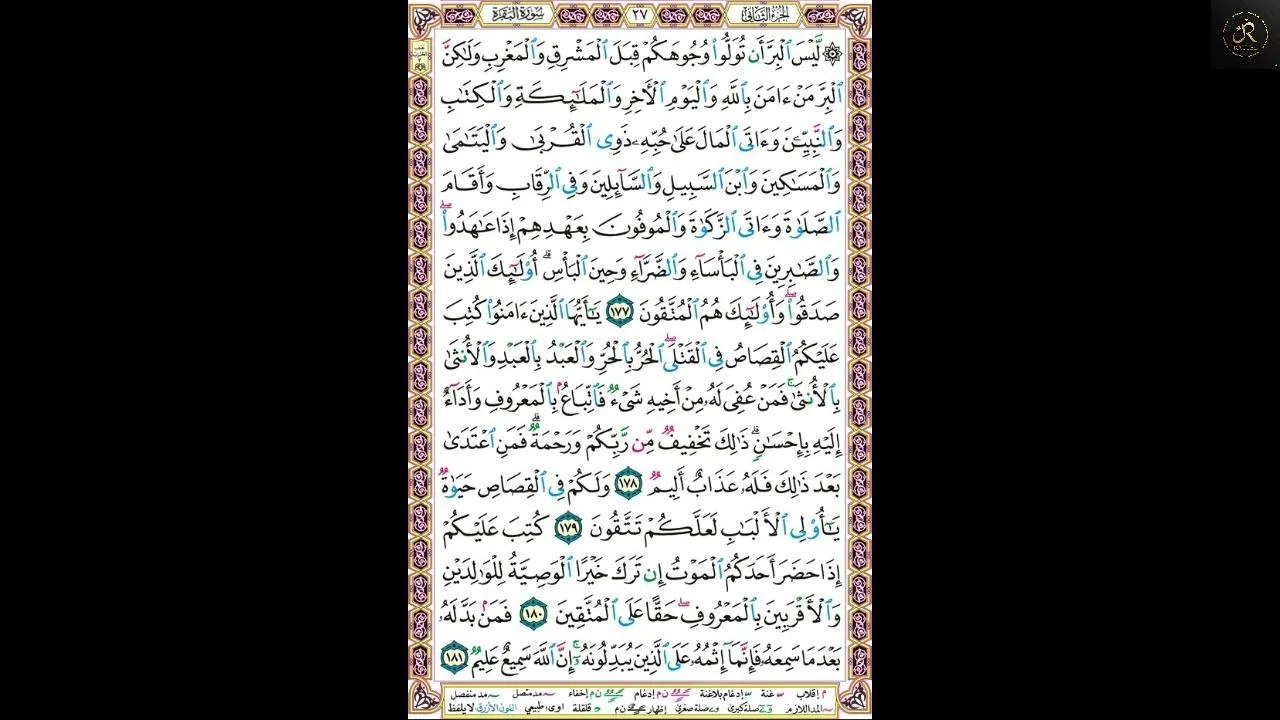 الجزء الثاني ٢٧ سورة البقرة
۞ لَّيْسَ ٱلْبِرَّ أَن تُوَلُّوا۟ وُجُوهَكُمْ قِبَلَ ٱلْمَشْرِقِ وَٱلْمَغْرِبِ وَلَـٰكِنَّ
ٱلْبِرَّ مَنْ ءَامَنَ بِٱللَّهِ وَٱلْيَوْمِ ٱلْـَٔاخِرِ وَٱلْمَلَـٰٓئِكَةِ وَٱلْكِتَـٰبِ
وَٱلنَّبِيِّـۧنَ وَءَاتَى ٱلْمَالَ عَلَىٰ حُبِّهِۦ ذَوِى ٱلْقُرْبَىٰ وَٱلْيَتَـٰمَىٰ
وَٱلْمَسَـٰكِينَ وَٱبْنَ ٱلسَّبِيلِ وَٱلسَّآئِلِينَ وَفِى ٱلرِّقَابِ وَأَقَامَ
ٱلصَّلَوٰةَ وَءَاتَى ٱلزَّكَوٰةَ وَٱلْمُوفُونَ بِعَهْدِهِمْ إِذَا عَـٰهَدُوا۟ ۖ
وَٱلصَّـٰبِرِينَ فِى ٱلْبَأْسَآءِ وَٱلضَّرَّآءِ وَحِينَ ٱلْبَأْسِ ۗ أُو۟لَـٰٓئِكَ ٱلَّذِينَ
صَدَقُوا۟ ۖ وَأُو۟لَـٰٓئِكَ هُمُ ٱلْمُتَّقُونَ ١٧٧ يَـٰٓأَيُّهَا ٱلَّذِينَ ءَامَنُوا۟ كُتِبَ
عَلَيْكُمُ ٱلْقِصَاصُ فِى ٱلْقَتْلَى ۖ ٱلْحُرُّ بِٱلْحُرِّ وَٱلْعَبْدُ بِٱلْعَبْدِ وَٱلْأُنثَىٰ
بِٱلْأُنثَىٰ ۚ فَمَنْ عُفِىَ لَهُۥ مِنْ أَخِيهِ شَىْءٌ فَٱتِّبَاعٌۢ بِٱلْمَعْرُوفِ وَأَدَآءٌ
إِلَيْهِ بِإِحْسَـٰنٍ ۗ ذَٰلِكَ تَخْفِيفٌ مِّن رَّبِّكُمْ وَرَحْمَةٌ ۗ فَمَنِ ٱعْتَدَىٰ
بَعْدَ ذَٰلِكَ فَلَهُۥ عَذَابٌ أَلِيمٌ ١٧٨ وَلَكُمْ فِى ٱلْقِصَاصِ حَيَوٰةٌ
يَـٰٓأُو۟لِى ٱلْأَلْبَـٰبِ لَعَلَّكُمْ تَتَّقُونَ ١٧٩ كُتِبَ عَلَيْكُمْ
إِذَا حَضَرَ أَحَدَكُمُ ٱلْمَوْتُ إِن تَرَكَ خَيْرًا ٱلْوَصِيَّةُ لِلْوَٰلِدَيْنِ
وَٱلْأَقْرَبِينَ بِٱلْمَعْرُوفِ ۖ حَقًّا عَلَى ٱلْمُتَّقِينَ ١٨٠ فَمَنۢ بَدَّلَهُۥ
بَعْدَ مَا سَمِعَهُۥ فَإِنَّمَآ إِثْمُهُۥ عَلَى ٱلَّذِينَ يُبَدِّلُونَهُۥٓ ۚ إِنَّ ٱللَّهَ سَمِيعٌ عَلِيمٌ ١٨١
م إقلاب غنة إدغام بلاغنة ن م إدغام ن م إخفاء مد متصل مد منفصل
المد اللازم صلة كبرى صلة صغرى إظهار ن م قلقلة اوى طبيعي اللون الأزرق لا يلفظ